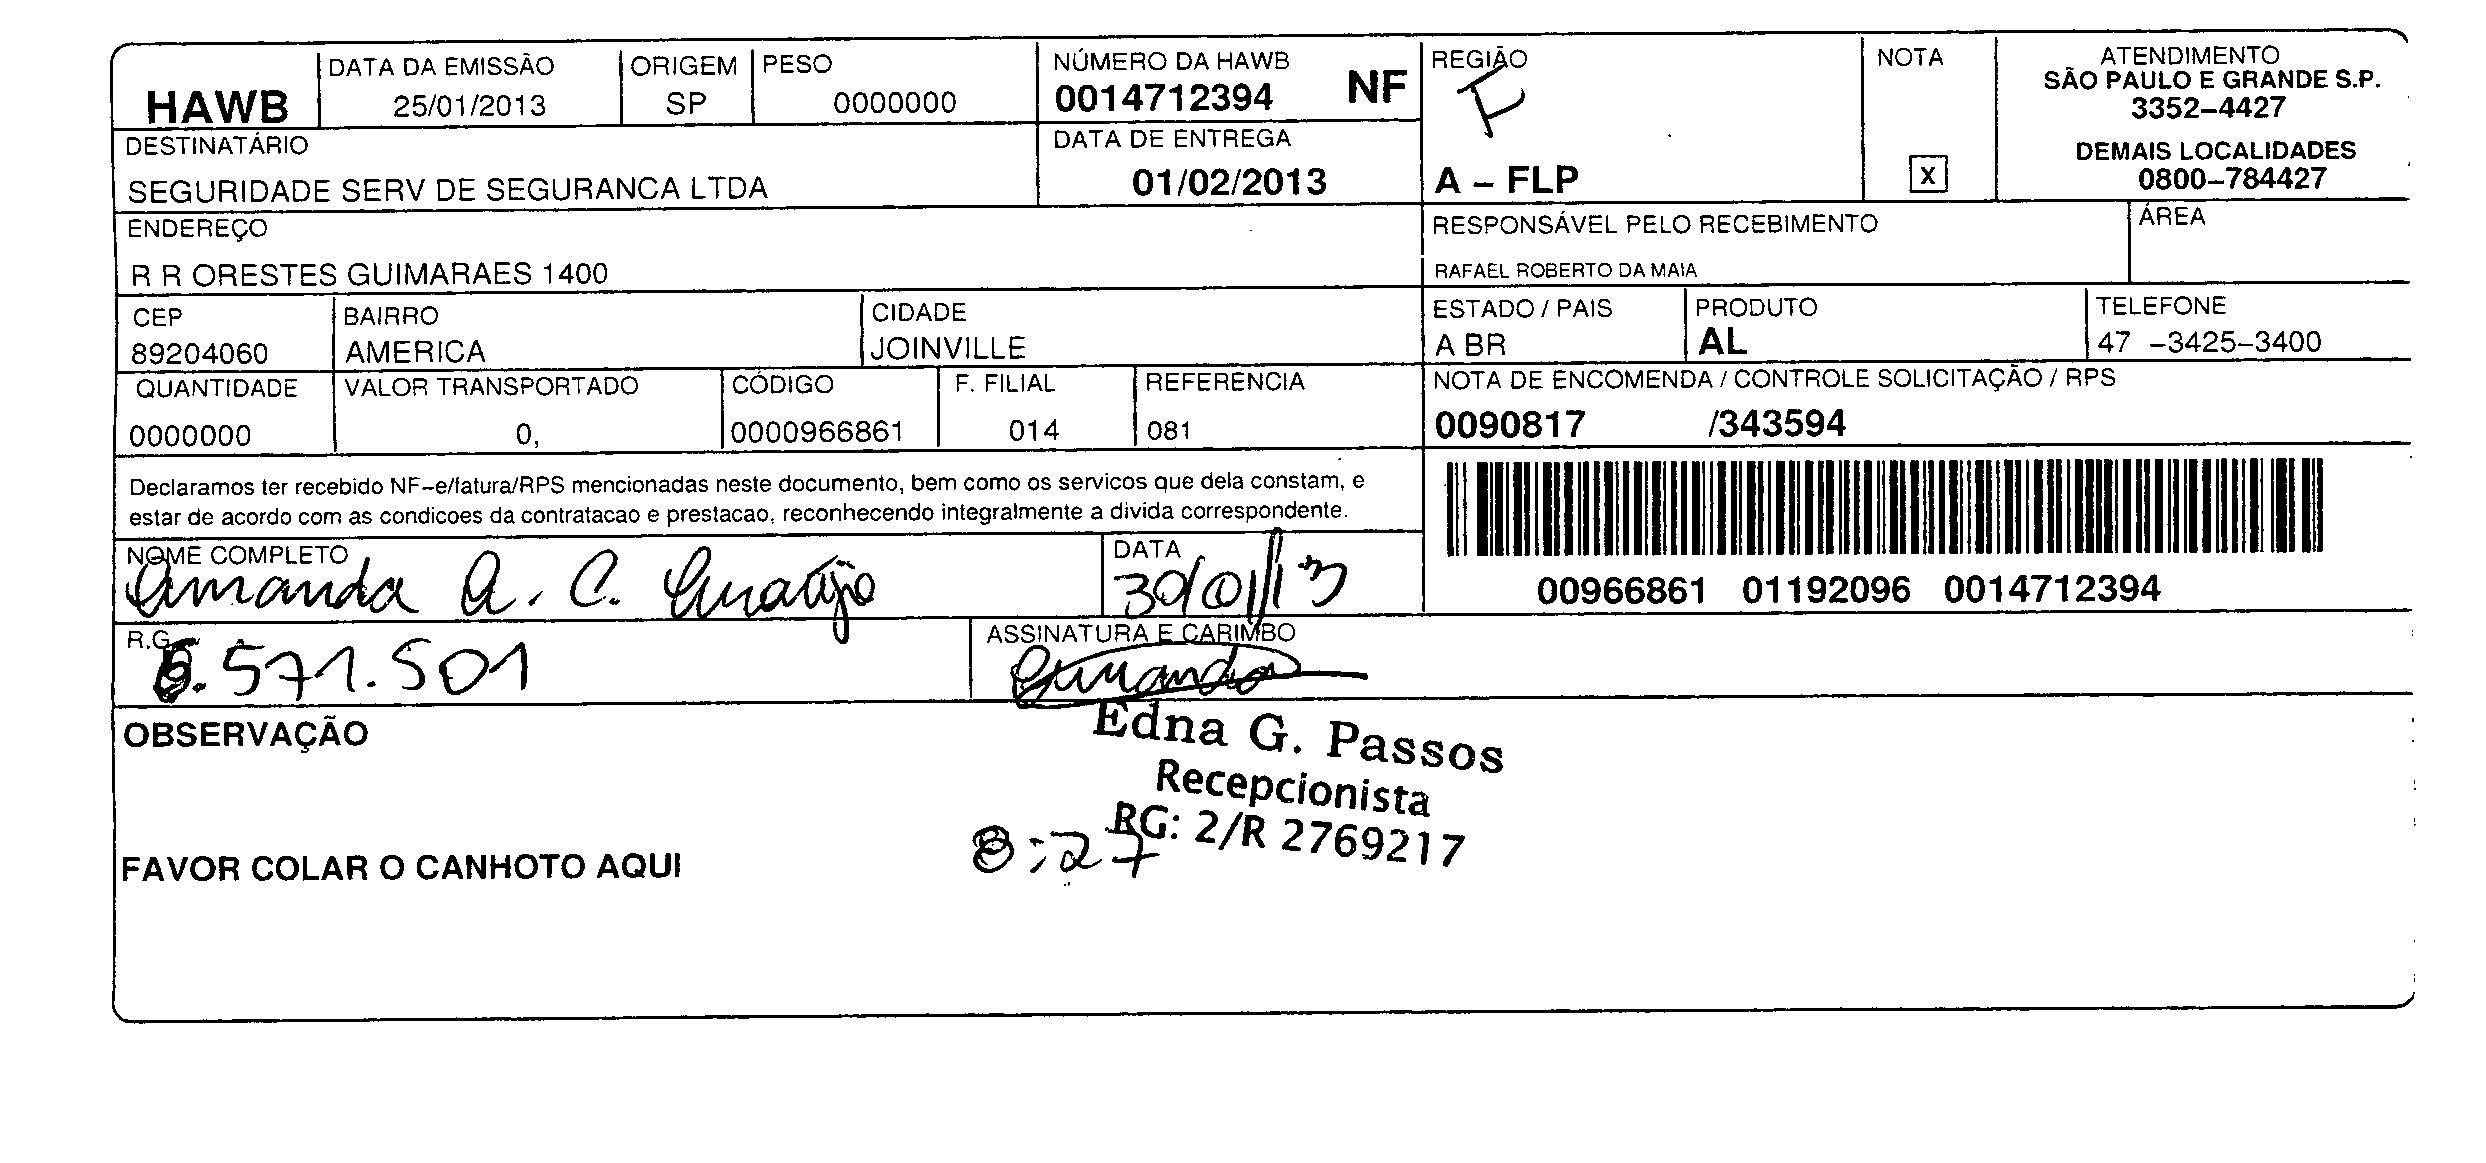 HAWB
DATA DA EMISSÃO
25/01/2013
ORIGEM
SP
PESO
0000000
NÚMERO DA HAWB
0014712394 NF
DATA DE ENTREGA
01/02/2013
REGIÃO
A – FLP
NOTA
X
ATENDIMENTO
SÃO PAULO E GRANDE S.P.
3352–4427
DEMAIS LOCALIDADES
0800–784427
DESTINATÁRIO
SEGURIDADE SERV DE SEGURANCA LTDA
ENDEREÇO
R R ORESTES GUIMARAES 1400
RESPONSÁVEL PELO RECEBIMENTO
RAFAEL ROBERTO DA MAIA
ÁREA
CEP
89204060
BAIRRO
AMERICA
CIDADE
JOINVILLE
ESTADO / PAIS
A BR
PRODUTO
AL
TELEFONE
47 –3425–3400
QUANTIDADE
0000000
VALOR TRANSPORTADO
0,
CÓDIGO
0000966861
F. FILIAL
014
REFERENCIA
081
NOTA DE ENCOMENDA / CONTROLE SOLICITAÇÃO / RPS
0090817 /343594
Declaramos ter recebido NF–e/fatura/RPS mencionadas neste documento, bem como os servicos que dela constam, e
estar de acordo com as condicoes da contratacao e prestacao, reconhecendo integralmente a divida correspondente.
00966861 01192096 0014712394
NOME COMPLETO
Amanda A. C. Araújo
DATA
30/01/13
R.G.
.571.501
ASSINATURA E CARIMBO
Amanda
Edna G. Passos
Recepcionista
RG: 2/R 2769217
8:27
OBSERVAÇÃO
FAVOR COLAR O CANHOTO AQUI